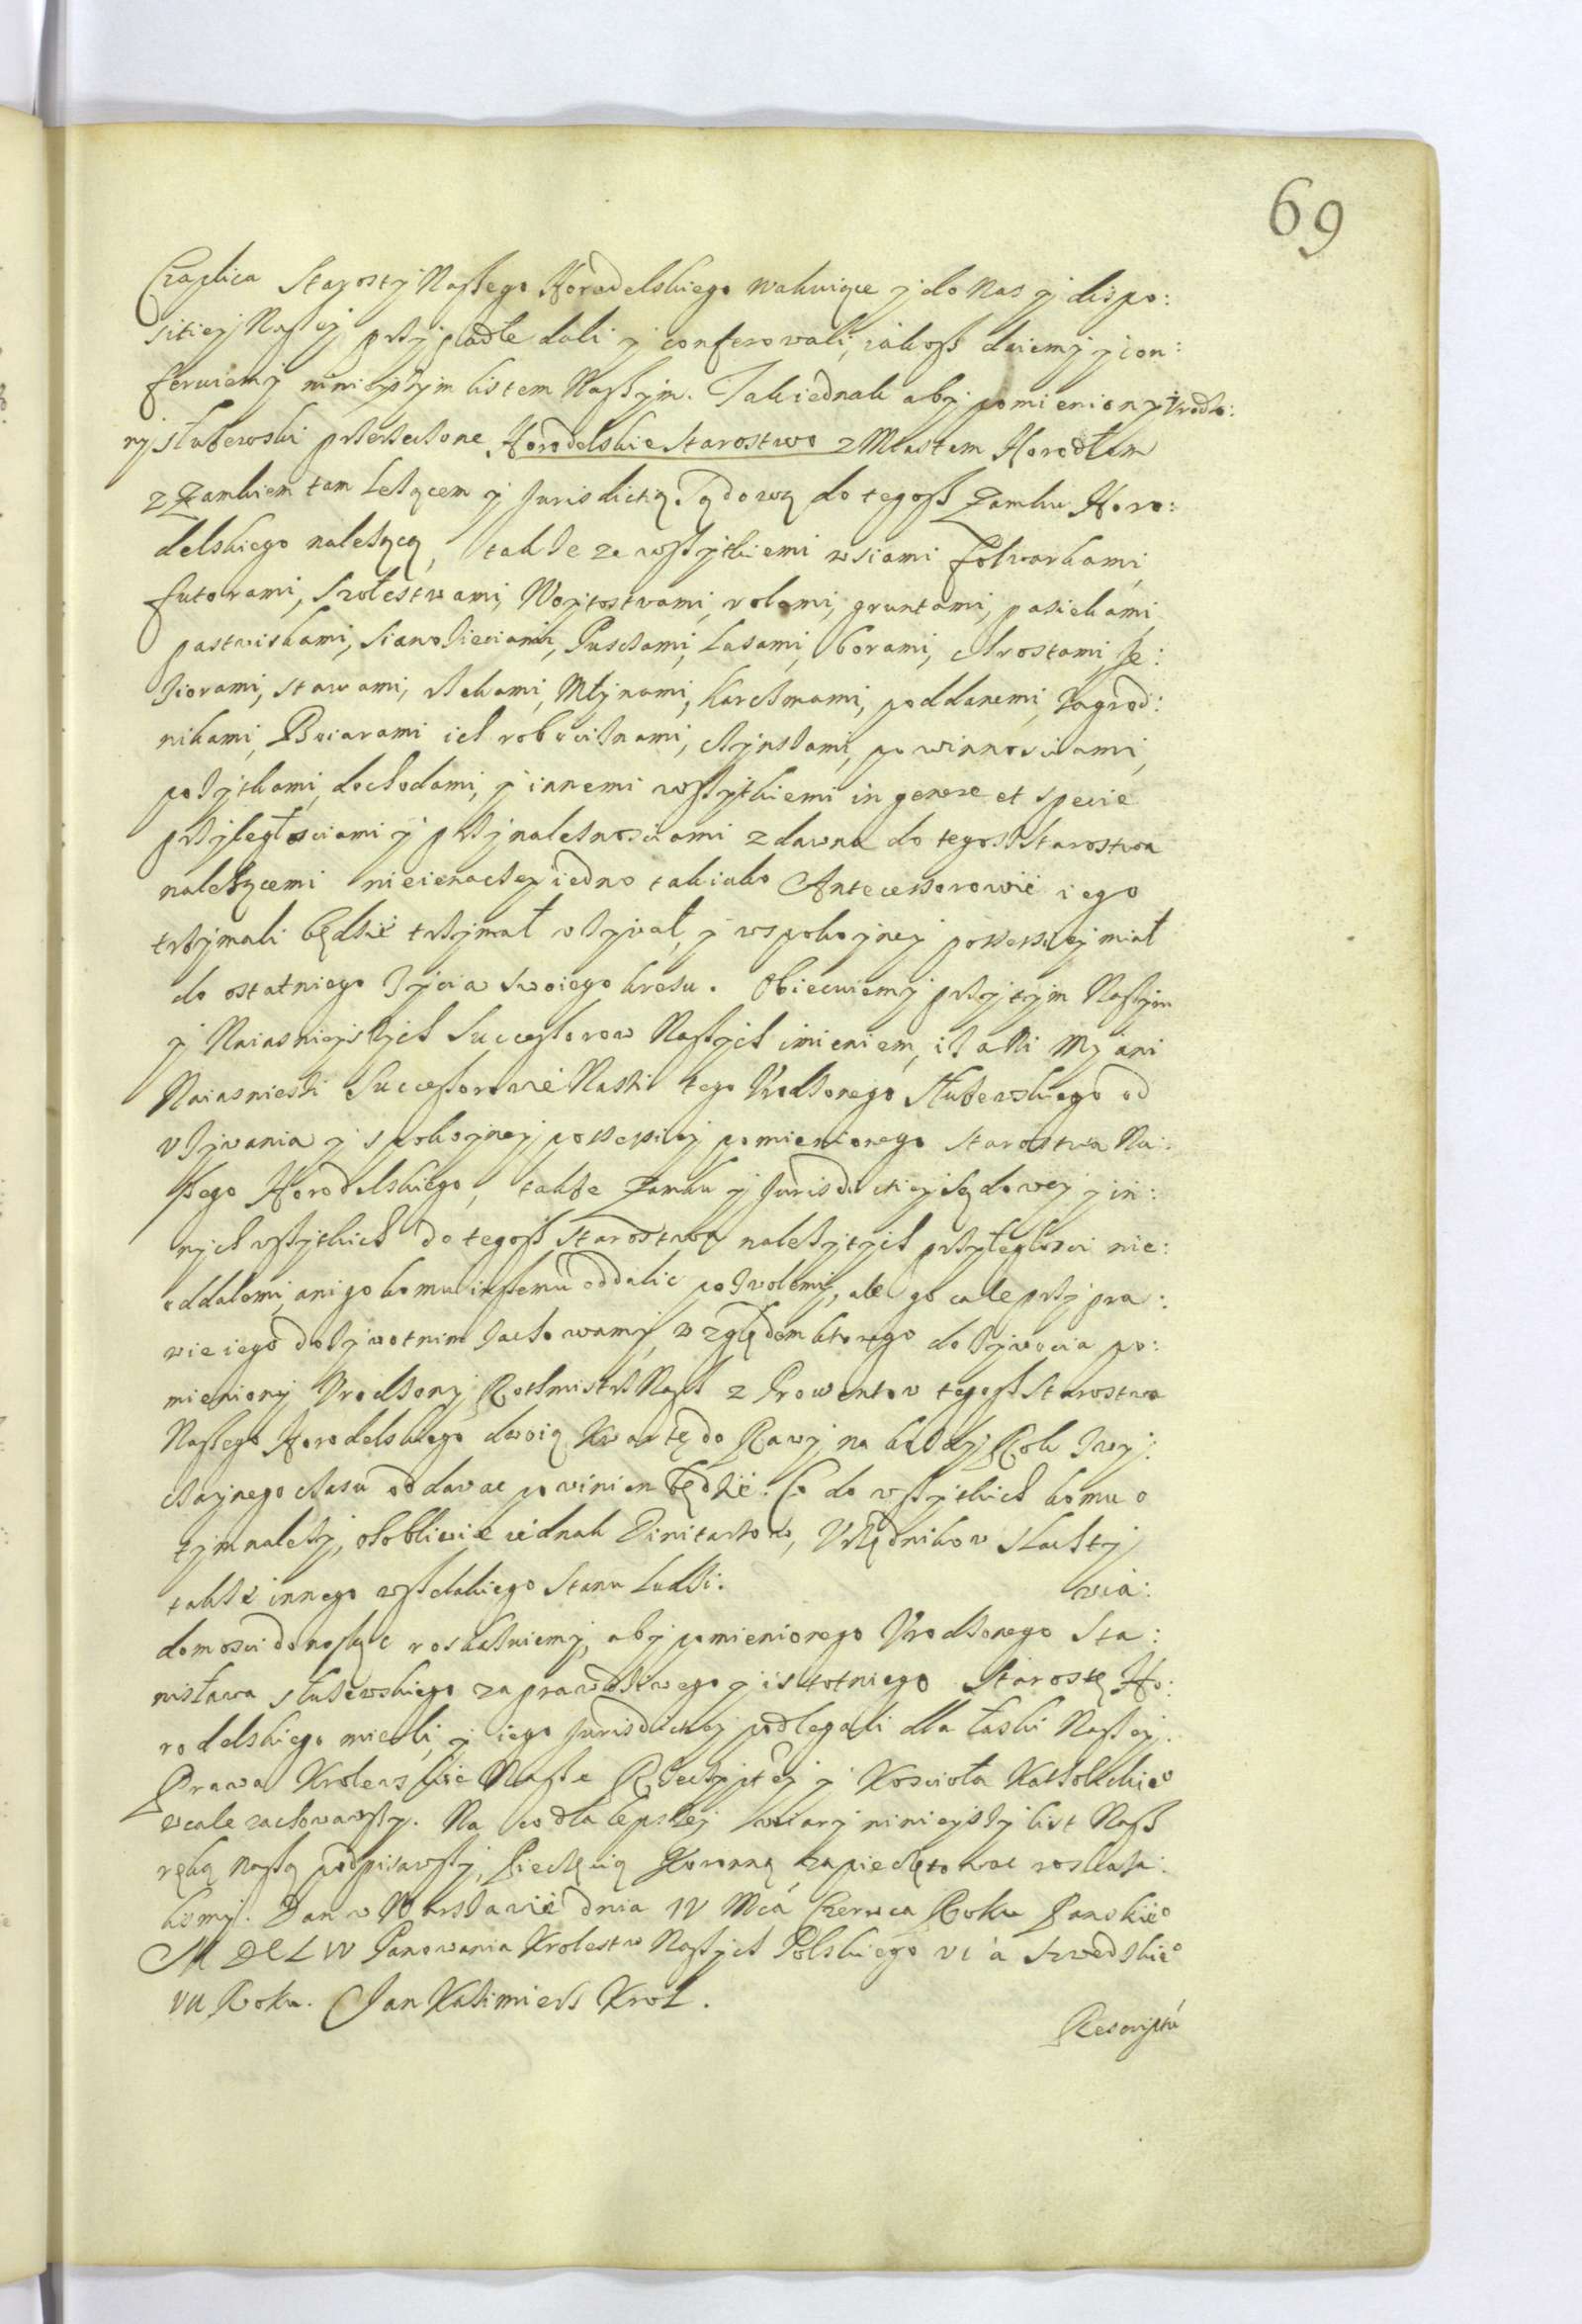 69
Czaplica Starosty Naszego Horodelskiego wakuiące y do Nas y dispo:
sitiey Naszey przypadłe dali y conferowali, iakosz daiemy y con:
feruiemy ninieyszym listem Naszym. Tak iednak aby pomieniony Vrodzo:
ny Słuzewski przerzeczone Horodelskie Starostwo z Miastem Horodłem
z Zamkiem tam lezącem y Jurisdictią Sądową do tegosz Zamku Horo:
delskiego nalezącą, takze ze wszytkiemi wsiami folwarkami,
futorami, Szołestwami, Woytostwami, rolami, gruntami, pasiekami,
pastwiskami, Sianozieciami, Pusczami, Lasami, borami, chrostami, Je:
ziorami, stawami, rzekami, Młynami, karczmami, poddanemi, Zagrod:
nikami, Boiarami ich robociznami, czynszami, powinnosciami,
pozytkami, dochodami, y innemi wszytkiemi in genere et specie
przyległosciami y przynaleznosciami zdawna do tegosz Starostwa
nalezącemi nieinaczey iedno tak iako Antecessorowie iego
trzymali będzie trzymał vzywał, y wspokoyney possessiey miał
do ostatniego zycia swoiego kresu. Obiecuiemy przytym Naszym
y Naiasnieyszych Successorow Naszych imieniem, iz ani My ani
Naiasnieszi Successorowie Naszi tego Vrodzonego Słuzewskiego od
vzywania y spokoyney possessiey pomienionego Starostwa Na:
szego Horodelskiego, takze Zamku y Jurisdictiey Sądowey y in:
nych wszytkich do tegosz Starostwa nalezytych przyległosci nie:
oddalemy, ani go komu inszemu oddalic pozwolemy, ale go cale przy pra:
wie iego dozywotnim zachowamy, względem ktorego dozywocia po:
mieniony Vrodzony Rothmistrz Nasz z Prowentow tegosz Starostwa
Naszego Horodelskiego dwoią Kwartę do Rawy na kazdy Rok zwy:
czaynego czasu oddawac powinien będzie. Co do wszytkich komu o
tym nalezy, osobliwie iednak Dinitarzow, Vrzędnikow Slachty,
takze innego wszelakiego Stanu Ludzi. wia:
domosci donosząc roskazuiemy, aby pomienionego Vrodzonego Sta:
nisława Słuzewskiego za prawdziwego y istotniego Starostę Ho:
rodelskiego mieli, y iego Jurisdictiey podlegali dla łaski Naszey.
Prawa Krolewskie Nasze Rzeczypltey y Koscioła Katholickieo
wcale zachowawszy. Na co dla lepszey wiary ninieyszy list Nasz
ręką naszą podpisawszy, Pieczęcią Koronną zapieczętowac roskaza:
lismy. Dan w Warszawie dnia IV Mca Czerwca Roku Panskieo
MDCLIV Panowania Krolestw Naszych Polskiego VI a Szwedzkieo
VII Roku. Jan Kazimierz Krol.